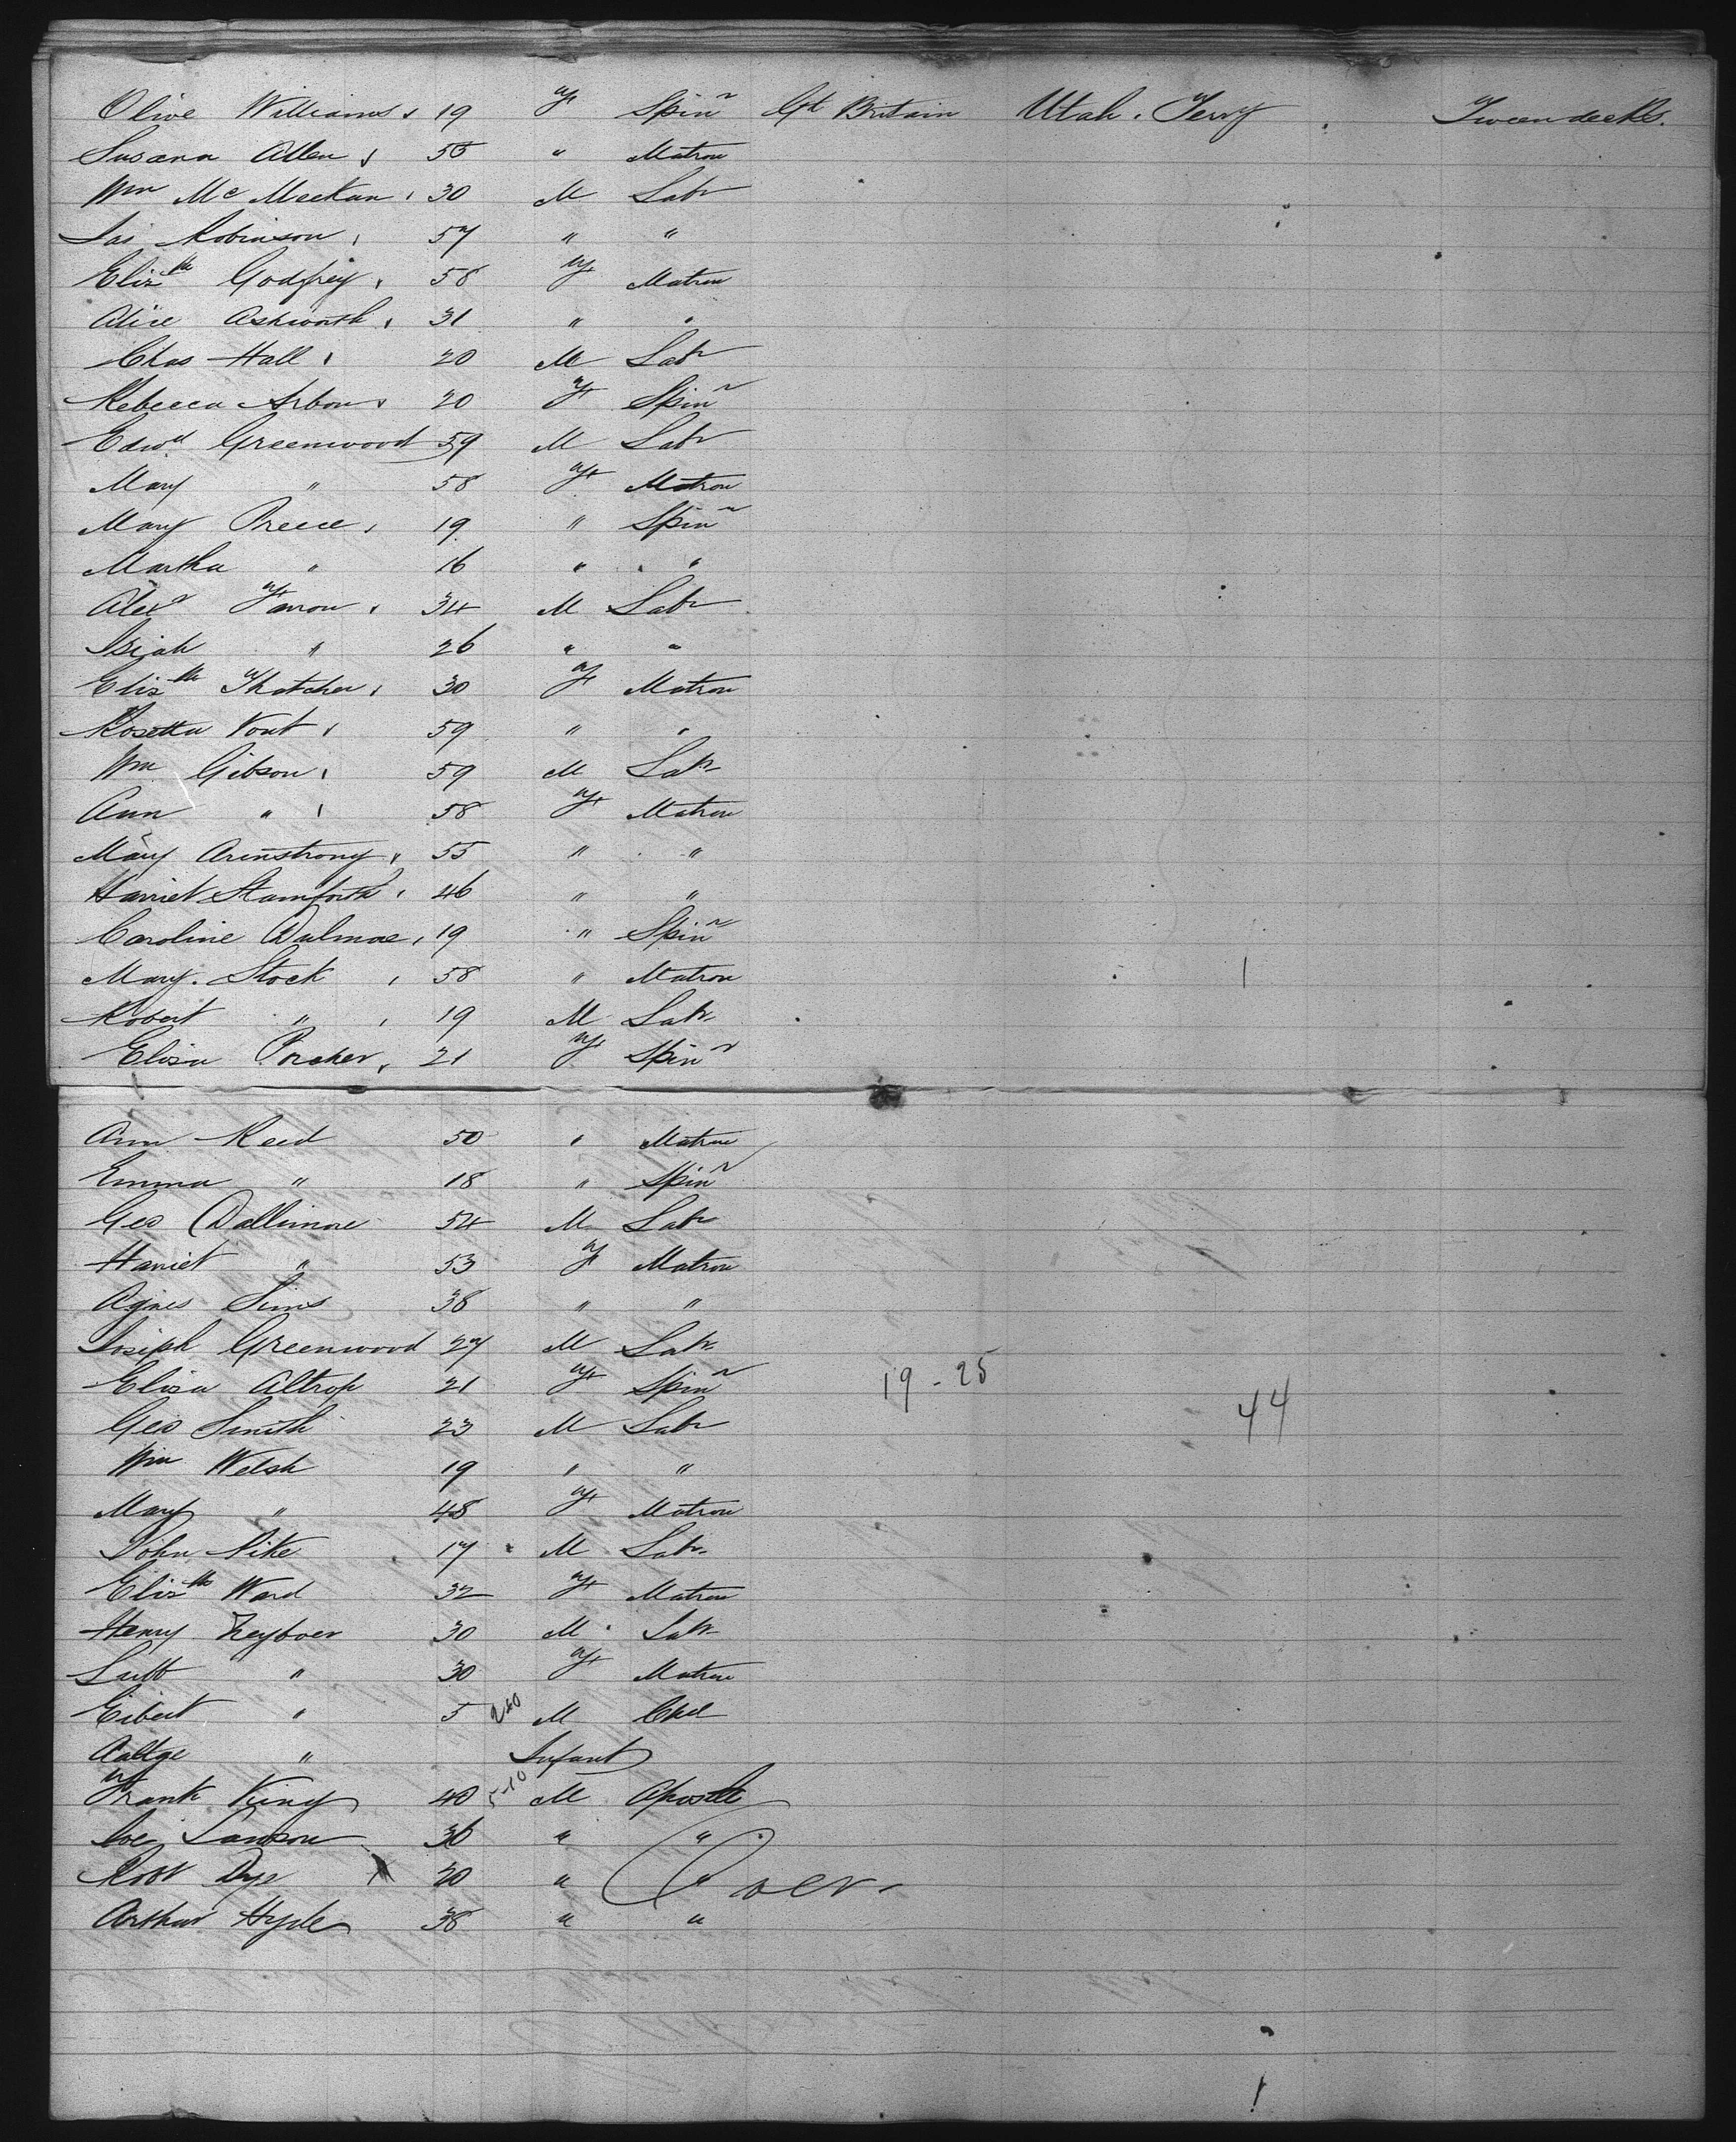 Olive Williams 19 F Spinr Gt Britain Utah Terry Tweendecks.
Susana Allen 55 " Matron
Wm McMeekan 30 M Labr
Jas Robinson 57 " "
Elizth Godfrey 58 F Matron
Alice Ashworth 31 " "
Chas Hall 20 M Labr
Rebecca Arbon 20 F Spinr
Edwd Greenwood 59 M Labr
Mary " 58 F Matron
Mary Preece 19 " Spinr
Martha " 16 " "
Alexr Farron 34 M Labr
Isiah " 26 " "
Elizth Thatcher 30 F Matron
Rosetta Vout 59 " "
Wm Gibson 59 M Labr
Ann " 58 F Matron
Mary Armstrong 55 " "
Harriet Stamforth 46 " "
Caroline Dalmore 19 " Spinr
Mary Stock 58 " Matron
Robert " 19 M Labr
Eliza Porcher 21 F Spinr
Ann Reed 50 " Matron
Emma " 18 " Spinr
Geo Dallimore 54 M Labr
Harriet " 53 F Matron
Agnes Sims 38 " "
Joseph Greenwood 27 M Labr
Eliza Altrop 21 F Spinr 19 - 25
Geo Smith 23 M Labr 44
Wm Welsh 19 " "
Mary " 48 F Matron
John Pike 17 M Labr
Elizth Ward 32 F Matron
Henry Heyboer 30 M Labr
" 30 F Matron
Eibert " 5 M Chd
Aaltge " Infant
Frank King 40 M Apostle
Joe Lawson 36 " "
Robt Dye 20 " " Over
Arthur Hyde 38 " "